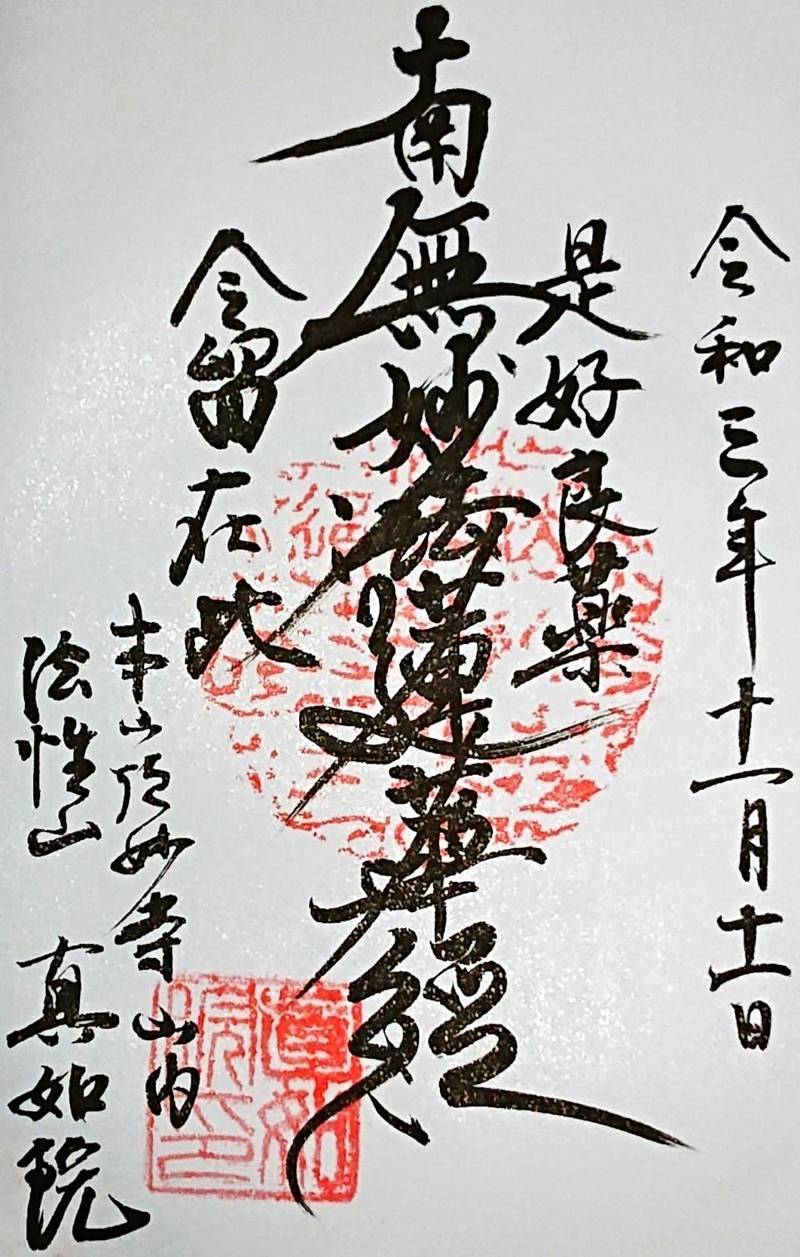 令和三年十一月十一日
是好良薬
南無妙法蓮華經
今留在此
本山頂妙寺山内
法性山 真如院
真如院印